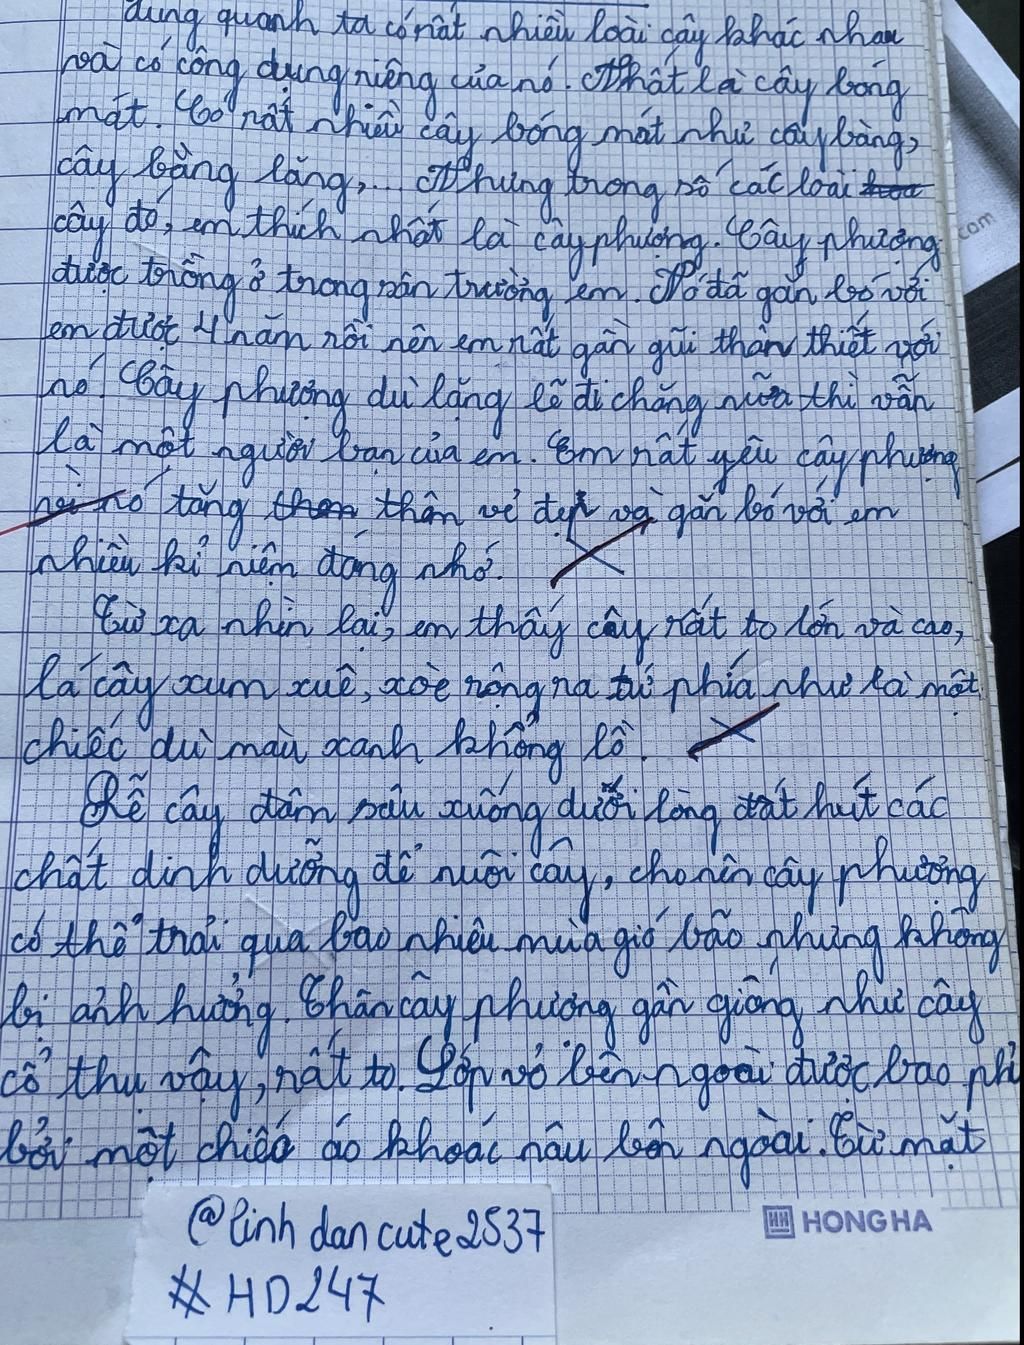 dung quanh ta có rất nhiều loài cây khác nhau
và có công dụng riêng của nó. Nhất là cây bóng
mát. Có rất nhiều cây bóng mát như cây bàng,
cây bằng lăng,... Nhưng trong số các loài hoa
cây đó, em thích nhất là cây phượng. Cây phượng
được trồng ở trong sân trường em. Nó đã gắn bó với
em được 4 năm rồi nên em rất gần gũi thân thiết với
nó. Cây phượng dù lặng lẽ đi chăng nữa thì vẫn
là một người bạn của em. Em rất yêu cây phượng
nó tăng thêm vẻ đẹp và gắn bó với em
nhiều kỉ niệm đáng nhớ.
Từ xa nhìn lại, em thấy cây rất to lớn và cao,
lá cây xum xuê, xòe rộng ra tứ phía như là một
chiếc dù màu xanh khổng lồ.
Rễ cây đâm sâu xuống dưới lòng đất hút các
chất dinh dưỡng để nuôi cây, cho nên cây phượng
có thể trải qua bao nhiêu mùa gió bão nhưng không
bị ảnh hưởng. Thân cây phượng gần giống như cây
cổ thụ vậy, rất to. Lớp vỏ bên ngoài được bao phủ
bởi một chiếc áo khoác nâu bên ngoài. Từ mặt
@linhdancute2537
#HD247
HH HONG HA
.com